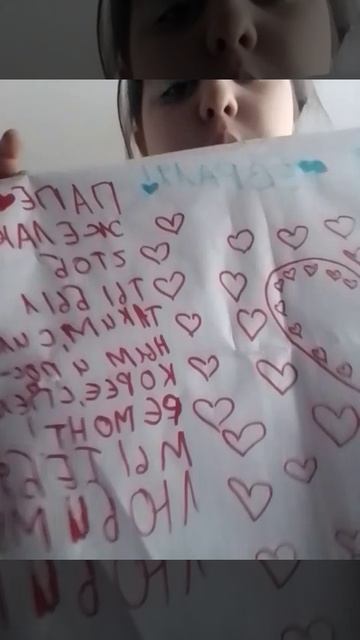 ПАПЕ
ЖЕЛАЮ
ЧТОБ
ТЫ БЫЛ
ТАКИМ,
НЫМ И ПОС-
КОРЕЕ
РЕМОНТ!
МЫ ТЕБЯ
ЛЮБИМ